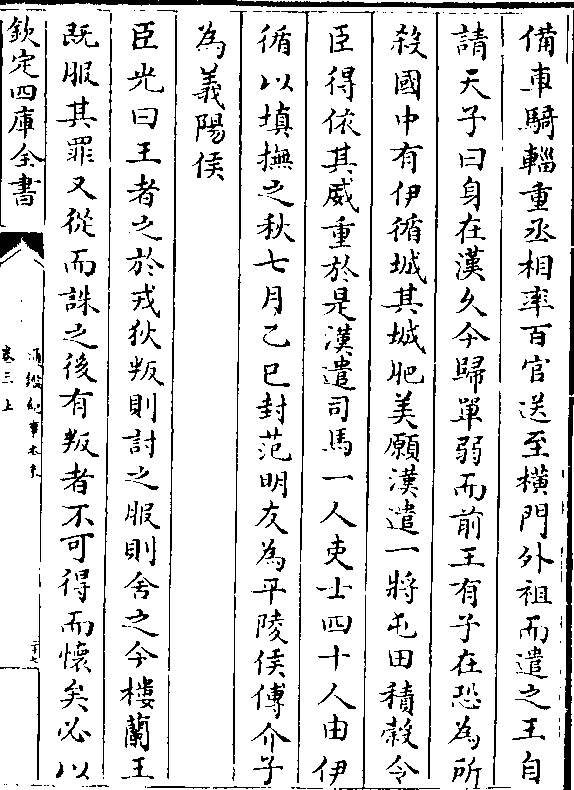 備車騎輜重丞相率百官送至橫門外祖而遣之王自
請天子曰身在漢久今歸單弱而前王有子在恐為所
殺國中有伊循城其城肥美願漢遣一將屯田積榖令
臣得依其威重於是漢遣司馬一人吏士四十人田伊
循以填撫之秋七月乙巳封范明友為平陵侯傅介子
為義陽侯
臣光曰王者之於戎狄叛則討之服則舍之今樓蘭王
既服其罪又從而誅之後有叛者不可得而懷矣必以
欽定四庫全書
通鑑紀事本末
卷三上
二十七